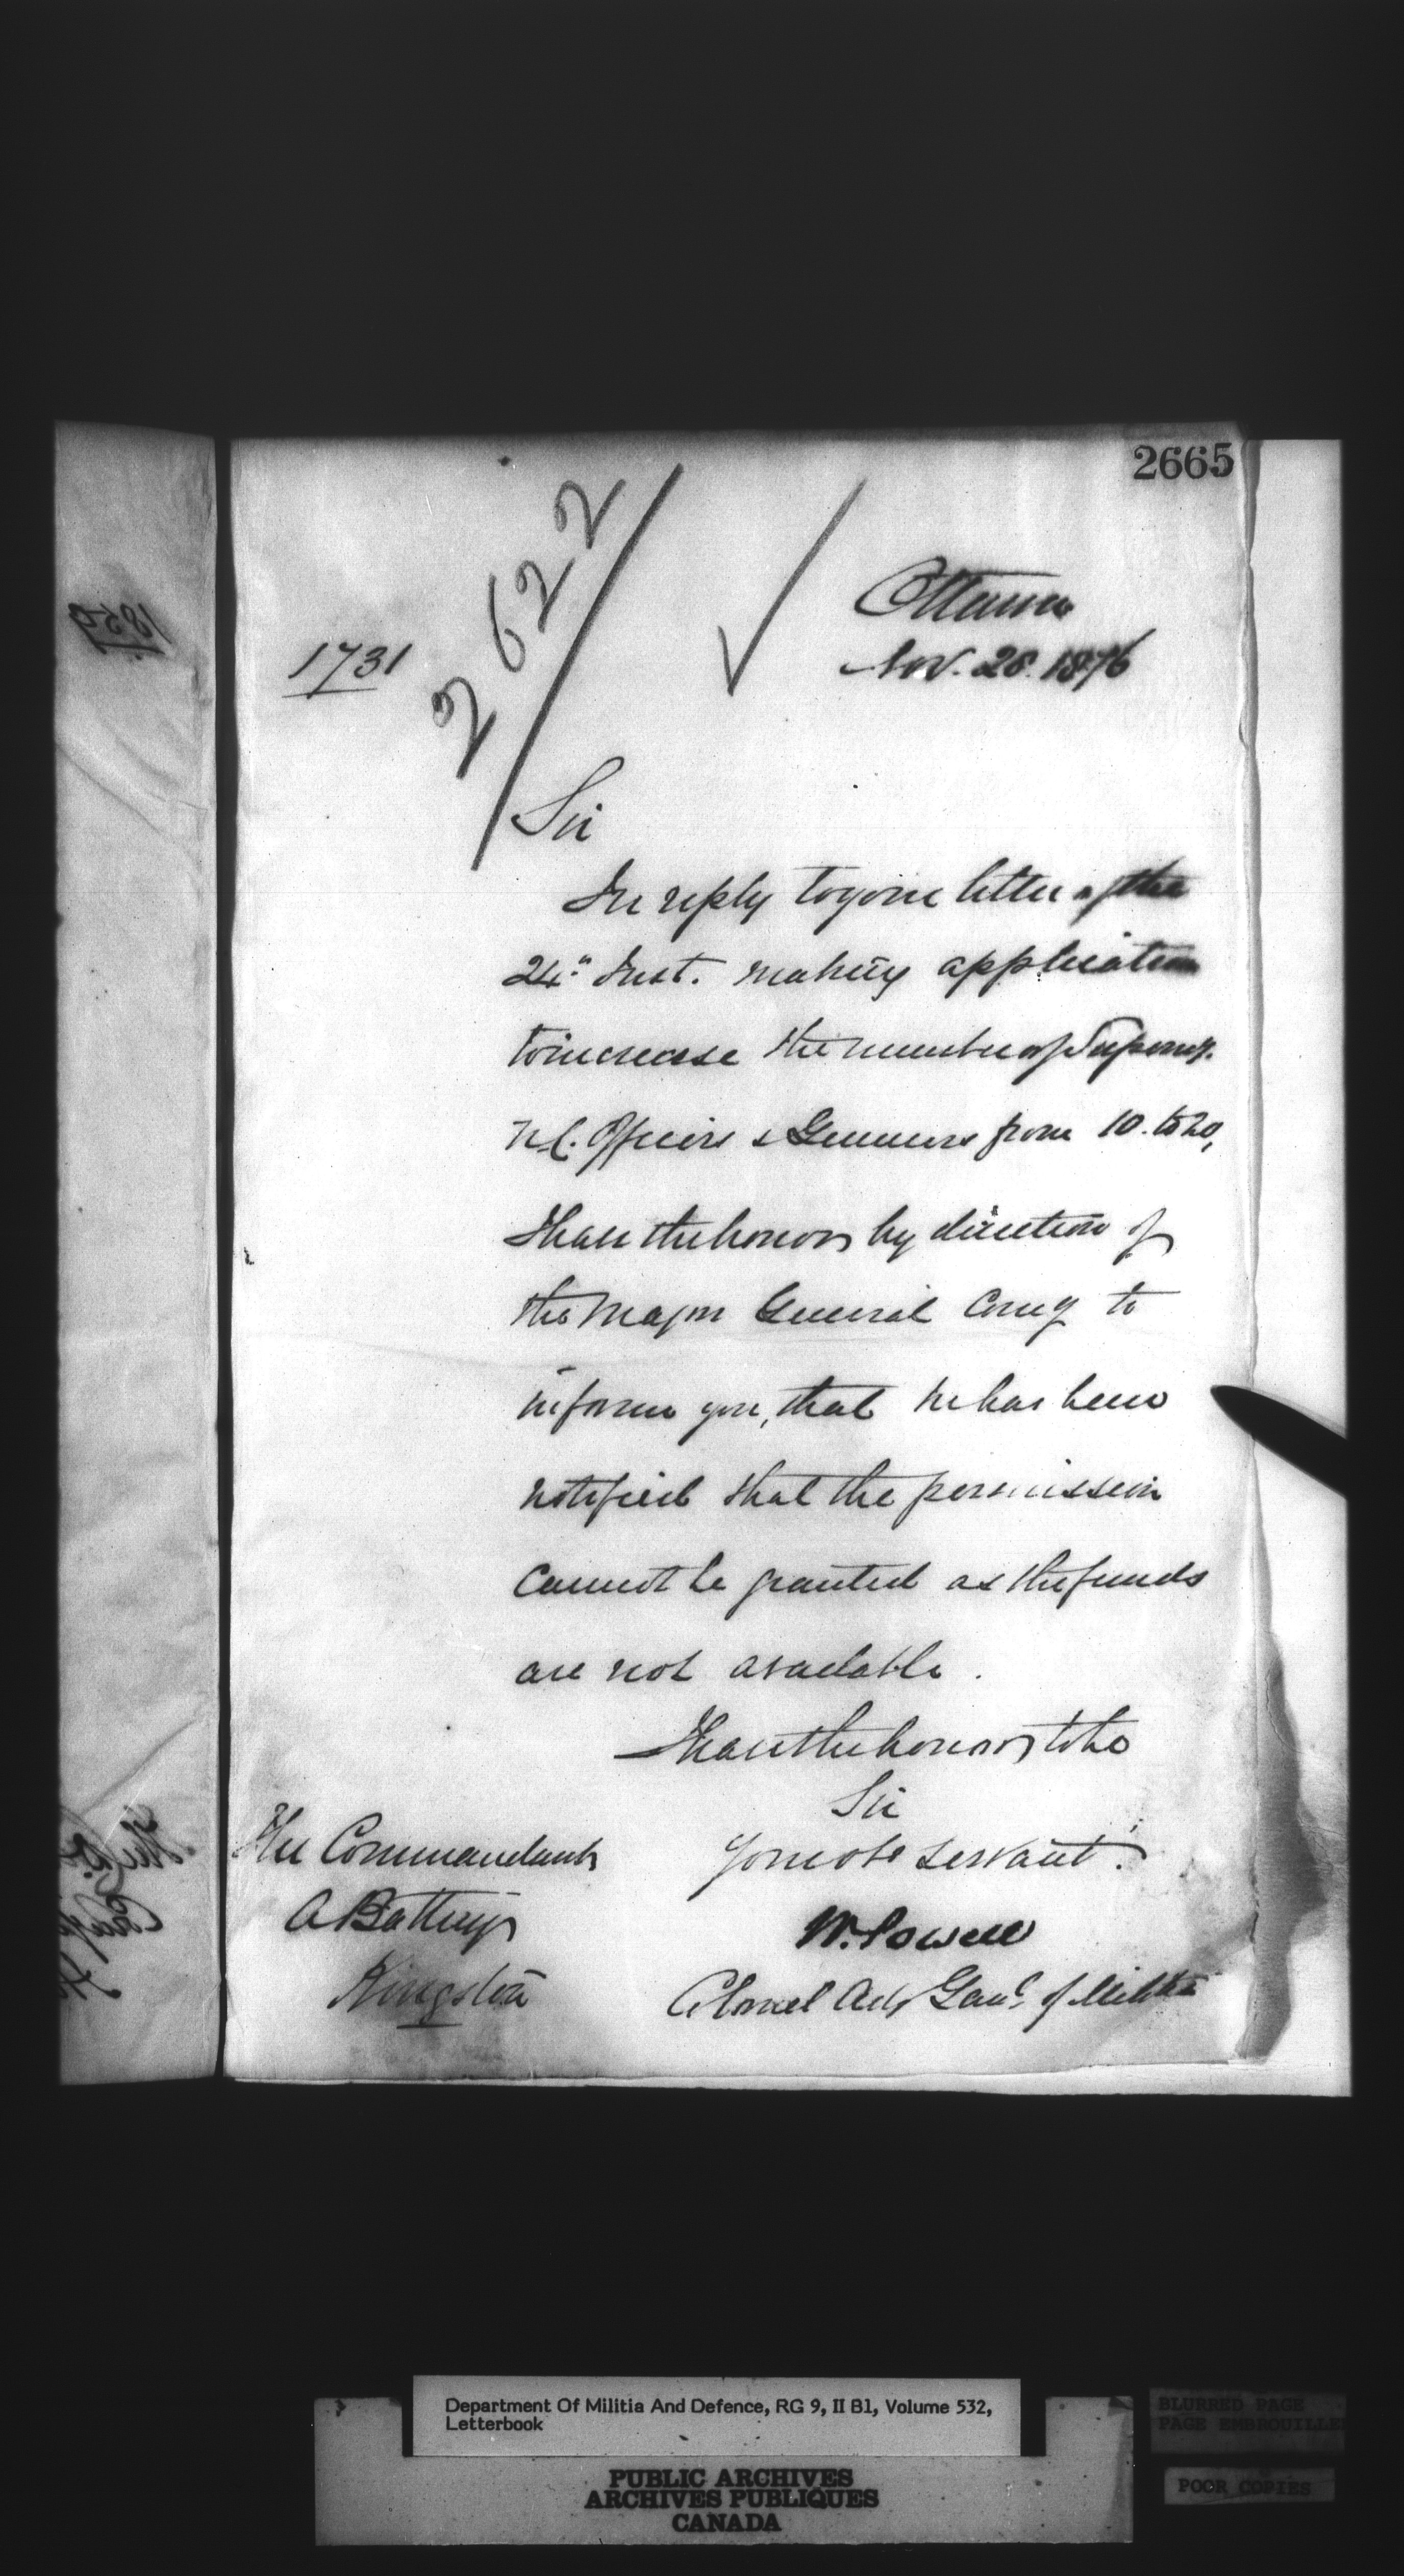 2665
2622
Ottawa
1731
Nov. 28. 1876
Sir
In reply to your letter of the
24th Inst. making application
to increase the number of Supernry.
N.C. Officers & Gunners from 10. to 20,
I have the honor by direction of
the Major General Comg to
inform you, that he has been
notified that the permission
cannot be granted as the funds
are not available.
I have the honor to be
Sir
Your obt servant
W. Powell
Colonel Adjt Genl. of Militia
The Commandant
A Battery
Kingston
Department Of Militia And Defence, RG 9, II B1, Volume 532,
Letterbook
PUBLIC ARCHIVES
ARCHIVES PUBLIQUES
CANADA
BLURRED PAGE
PAGE EMBROUILLEE
POOR COPIES